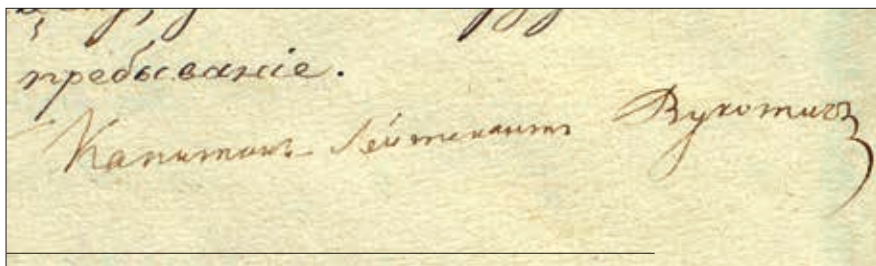 пребыванiе.
Капитанъ Лейтенантъ Вукотичъ